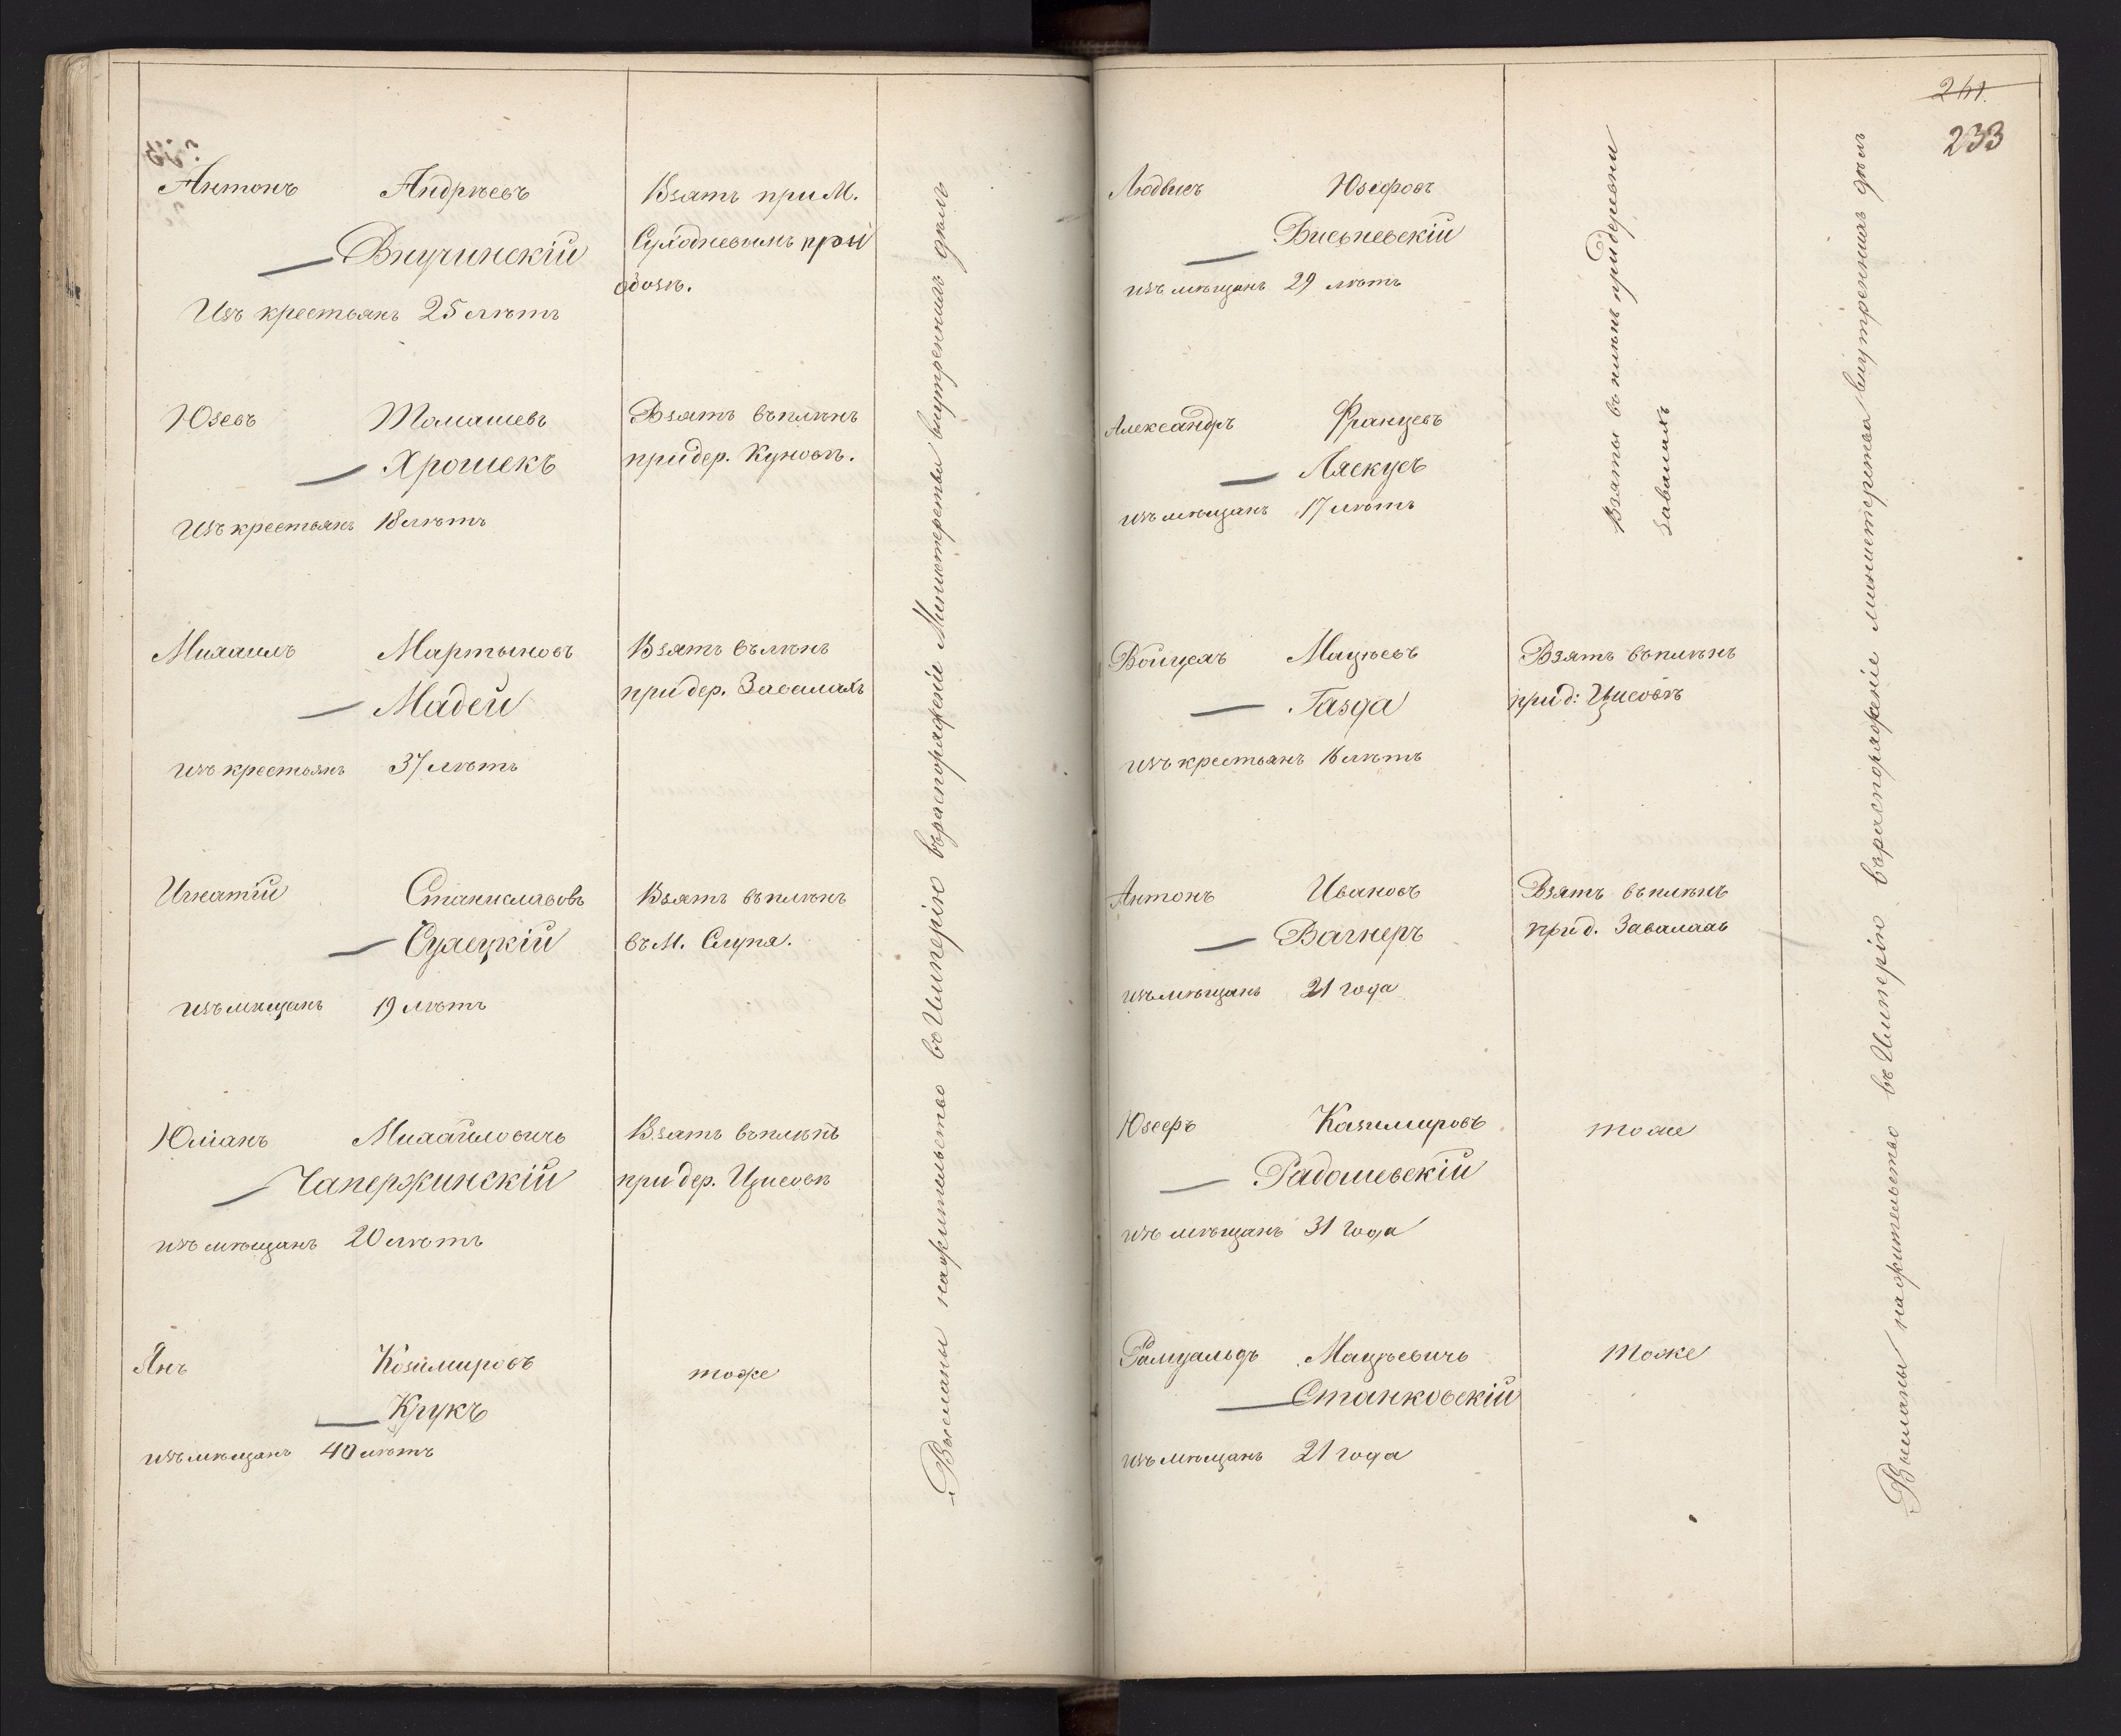 Антонъ Андрѣевъ
Внучинскій
Изъ крестьянъ 25 лѣтъ
Взятъ при М.
Суходневымъ при
обозѣ.
Юзевъ Томашевъ
Хрошекъ
Изъ крестьянъ 18 лѣтъ
Взятъ въ плѣнъ
при дер. Куновѣ.
Михаилъ Мартыновъ
Мадей
изъ крестьянъ 37 лѣтъ
Взятъ въ лѣнъ
при дер. Завалахъ
Игнатій Станиславовъ
Сулецкій
изъ мѣщанъ 19 лѣтъ
Взятъ въ плѣнъ
въ М. Слупя.
Юліанъ Михайловичъ
Чапержинскій
изъ мѣщанъ 20 лѣтъ
Взятъ въ плѣнъ
при дер. Цисовѣ
Янъ Козимировъ
Крукъ
изъ мѣщанъ 40 лѣтъ
тоже
Высланы на жительство въ Имперію въ распоряженіе Министерства внутреннихъ дѣлъ
261.
233
Людвигъ Юзефовъ
Висьневскій
изъ мѣщанъ 29 лѣтъ
Александръ Францевъ
Ляскусъ
изъ мѣщанъ 17 лѣтъ
Взяты въ плѣнъ при деревни
Завалахъ
Войцехъ Мацѣевъ
Газда
изъ крестьянъ 18 лѣтъ
Взятъ въ плѣнъ
при д: Цисовѣ
Антонъ Ивановъ
Вагнеръ
изъ мѣщанъ 21 года
Взятъ въ плѣнъ
при д. Завалахъ
Юзефъ Казимировъ
Радошевскій
изъ мѣщанъ 31 года
тоже
Рамуальдъ Мацѣевичъ
Станковскій
изъ мѣщанъ 21 года
тоже
Высланы на жительство въ Имперію въ распоряженіе министерства внутреннихъ дѣлъ